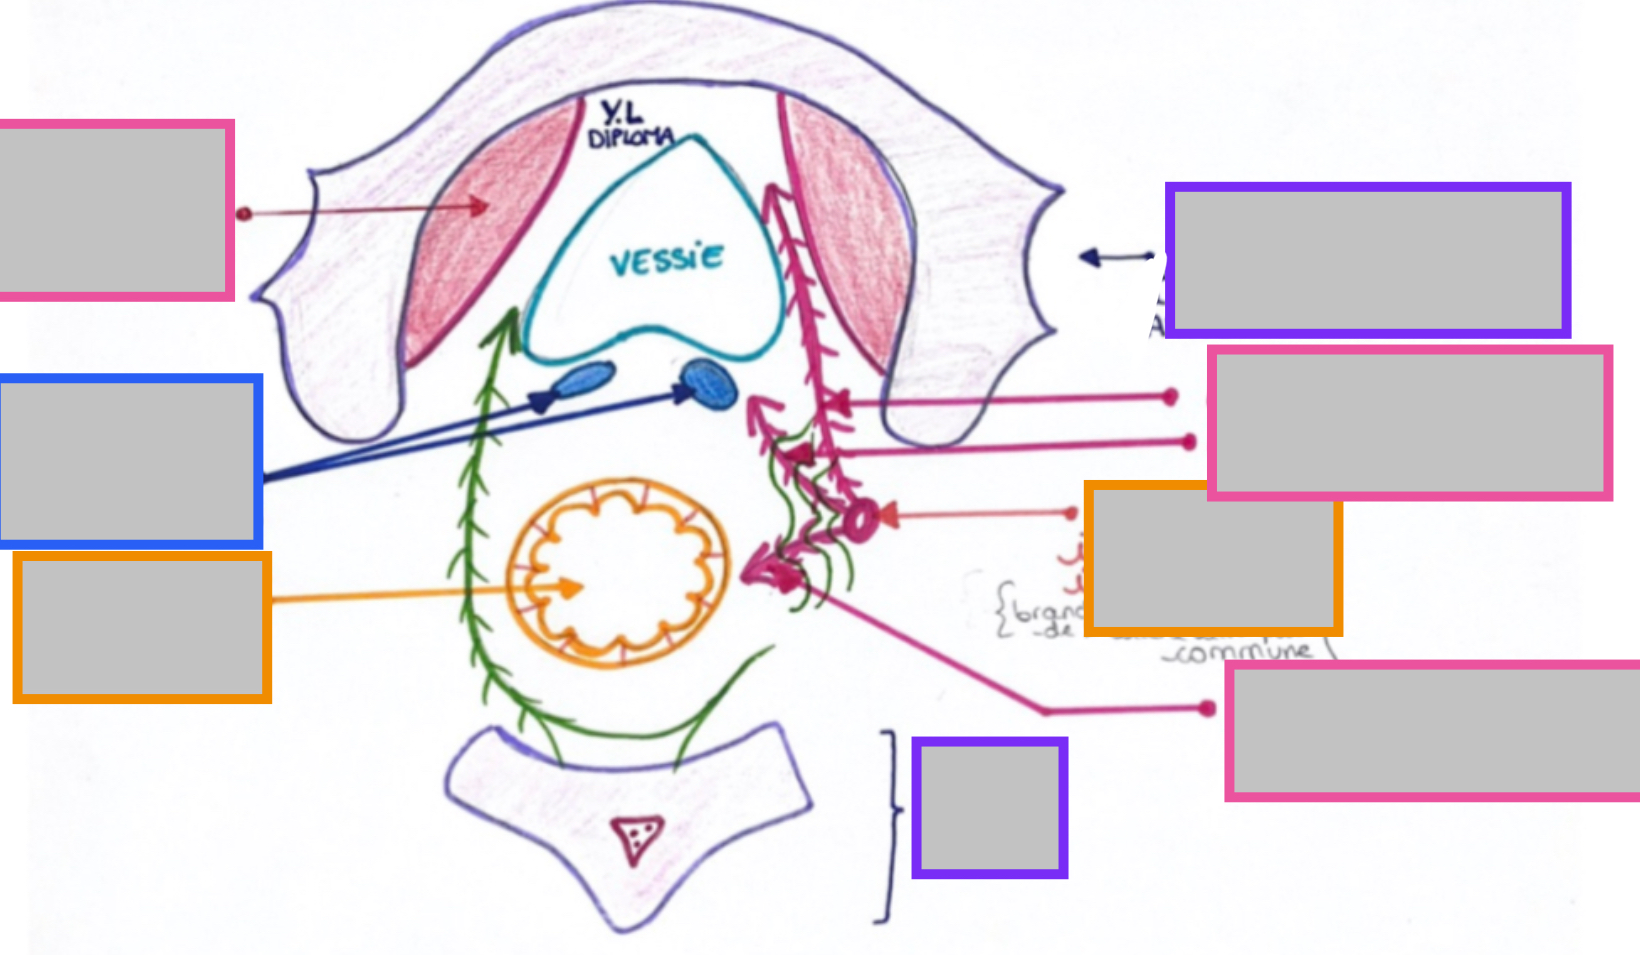 Y.L
DIPLOMA
VESSiE
{branc
-de
-commune